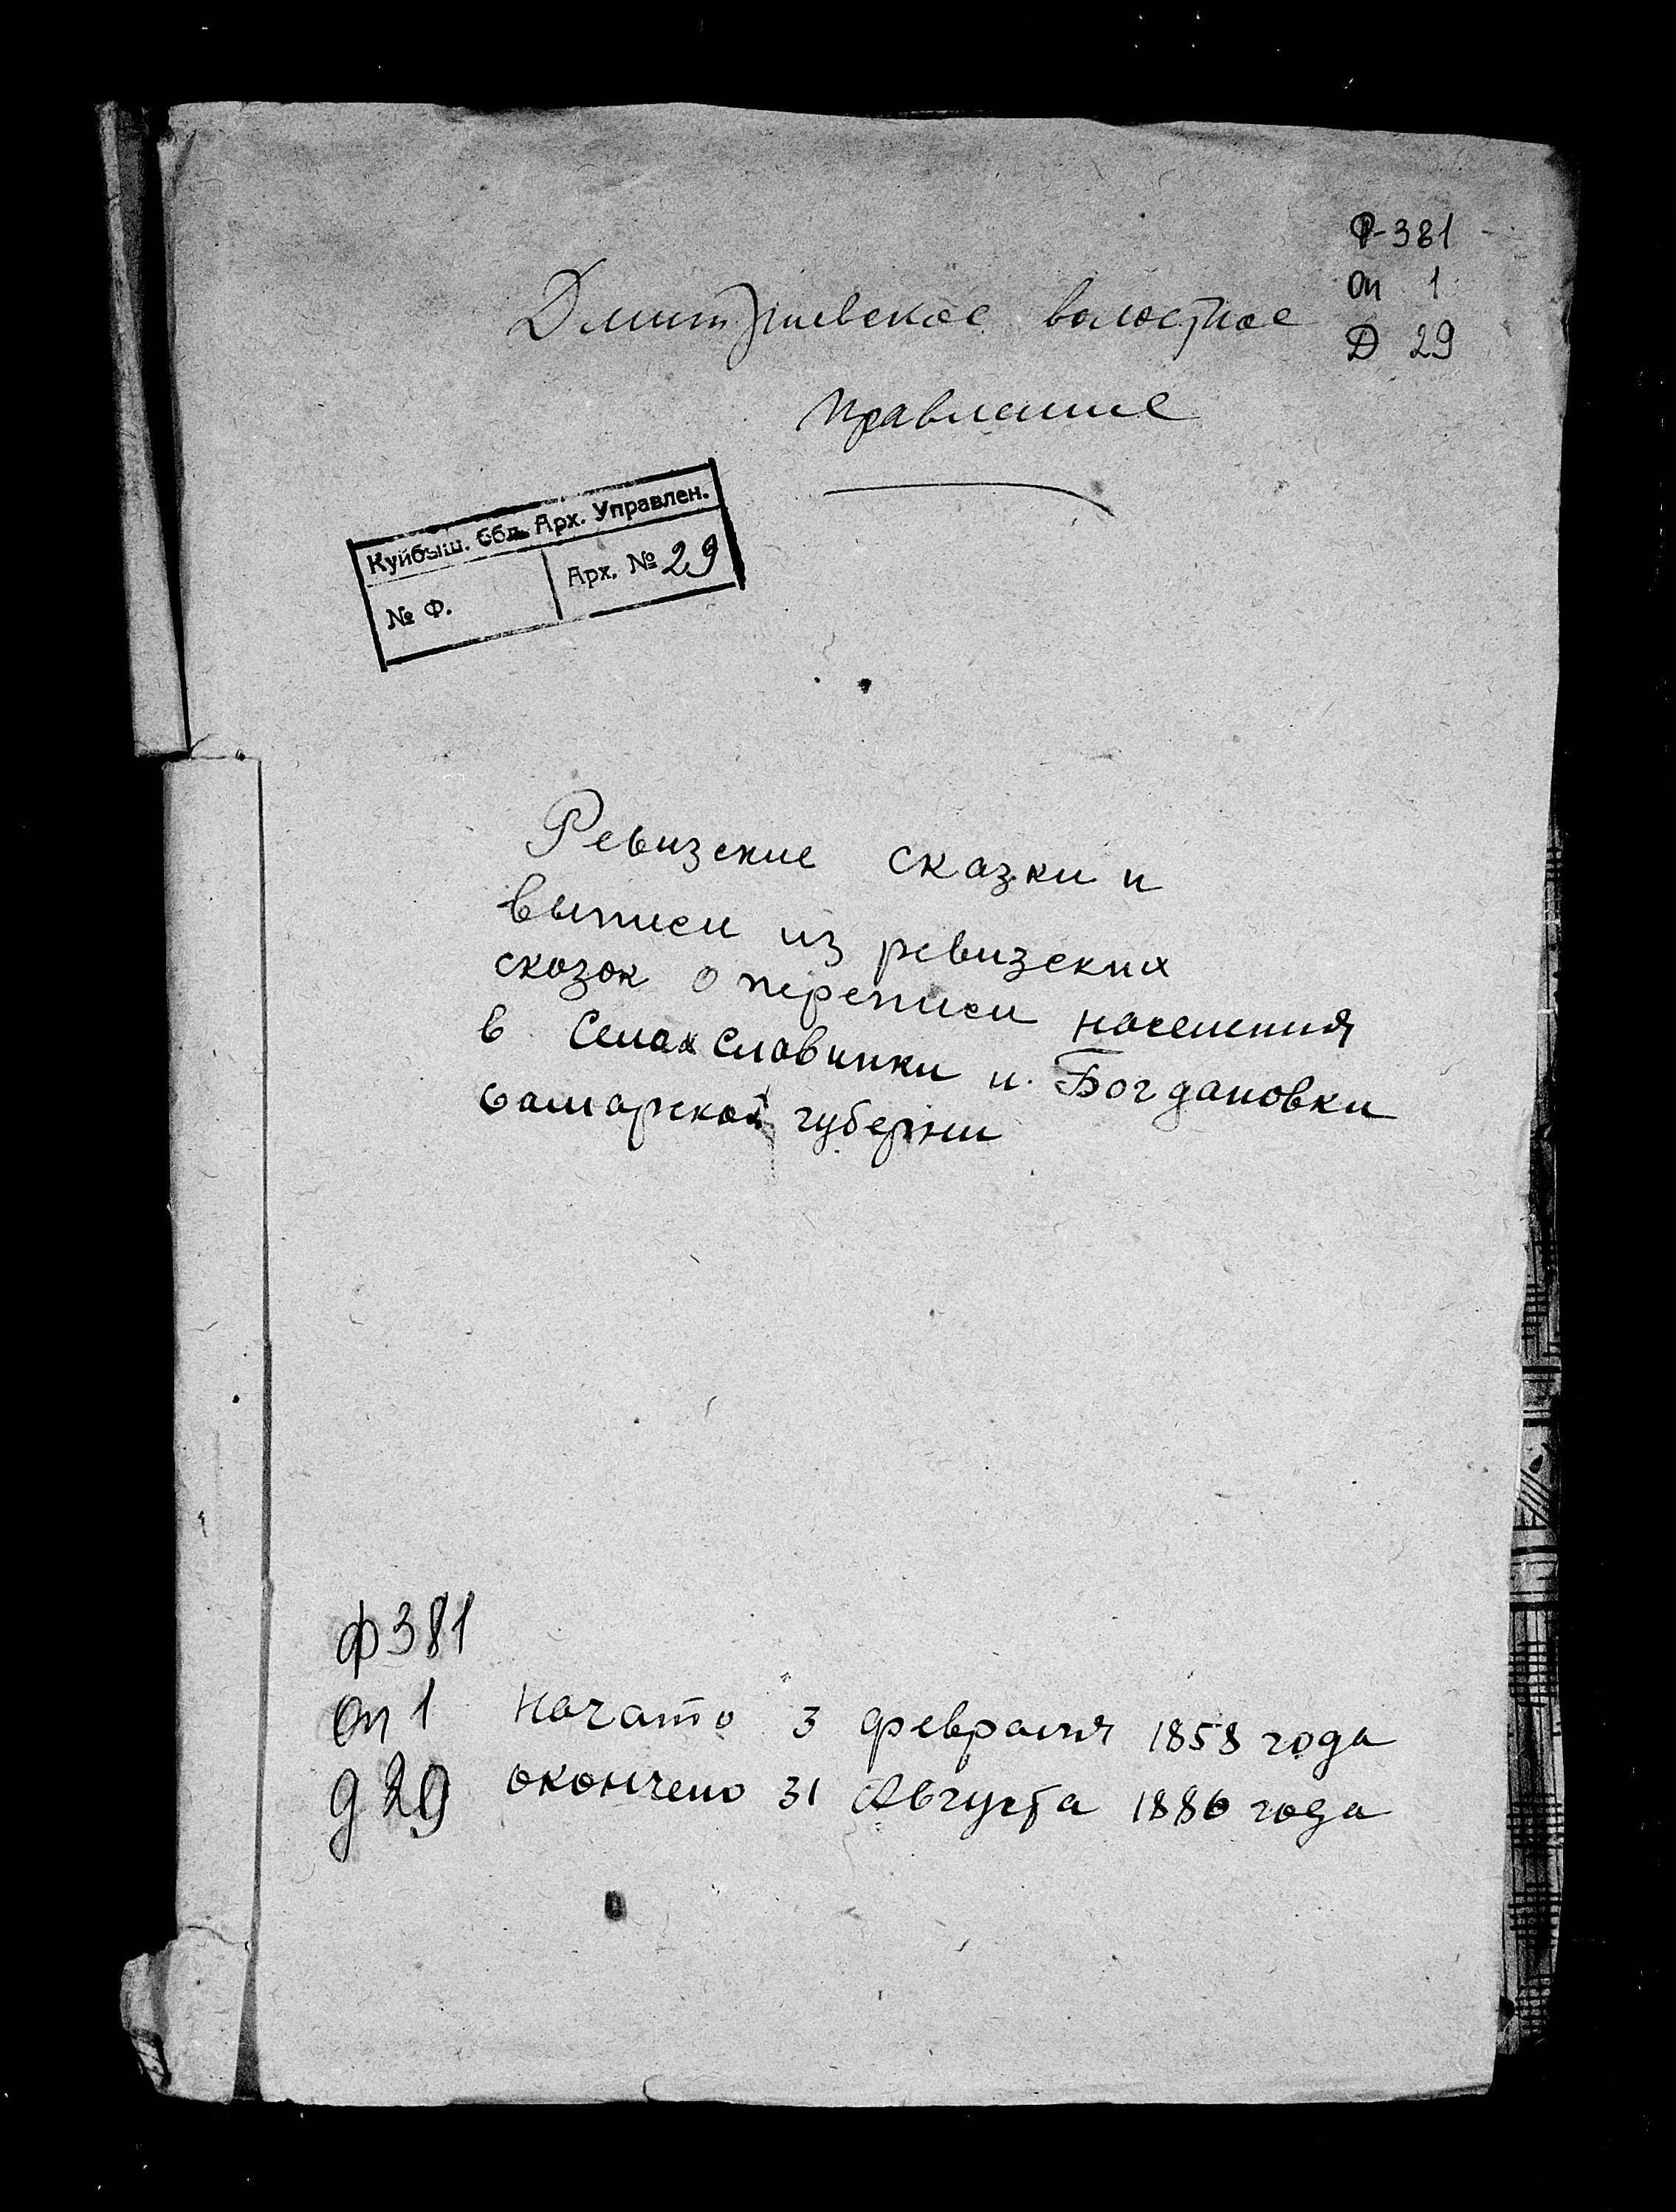 Ф-381
Оп 1
Д 29
Дмитриевское волостное
правление
Куйбыш. Обл. Арх. Управлен.
№ Ф.
Арх. № 29
Ревизские сказки и
выписи из ревизских
сказок о переписи населения
в Селах Славинки и Богдановки
Самарской губернии
Ф 381
Оп 1
д 29
Начато 3 февраля 1858 года
окончено 31 Августа 1886 года